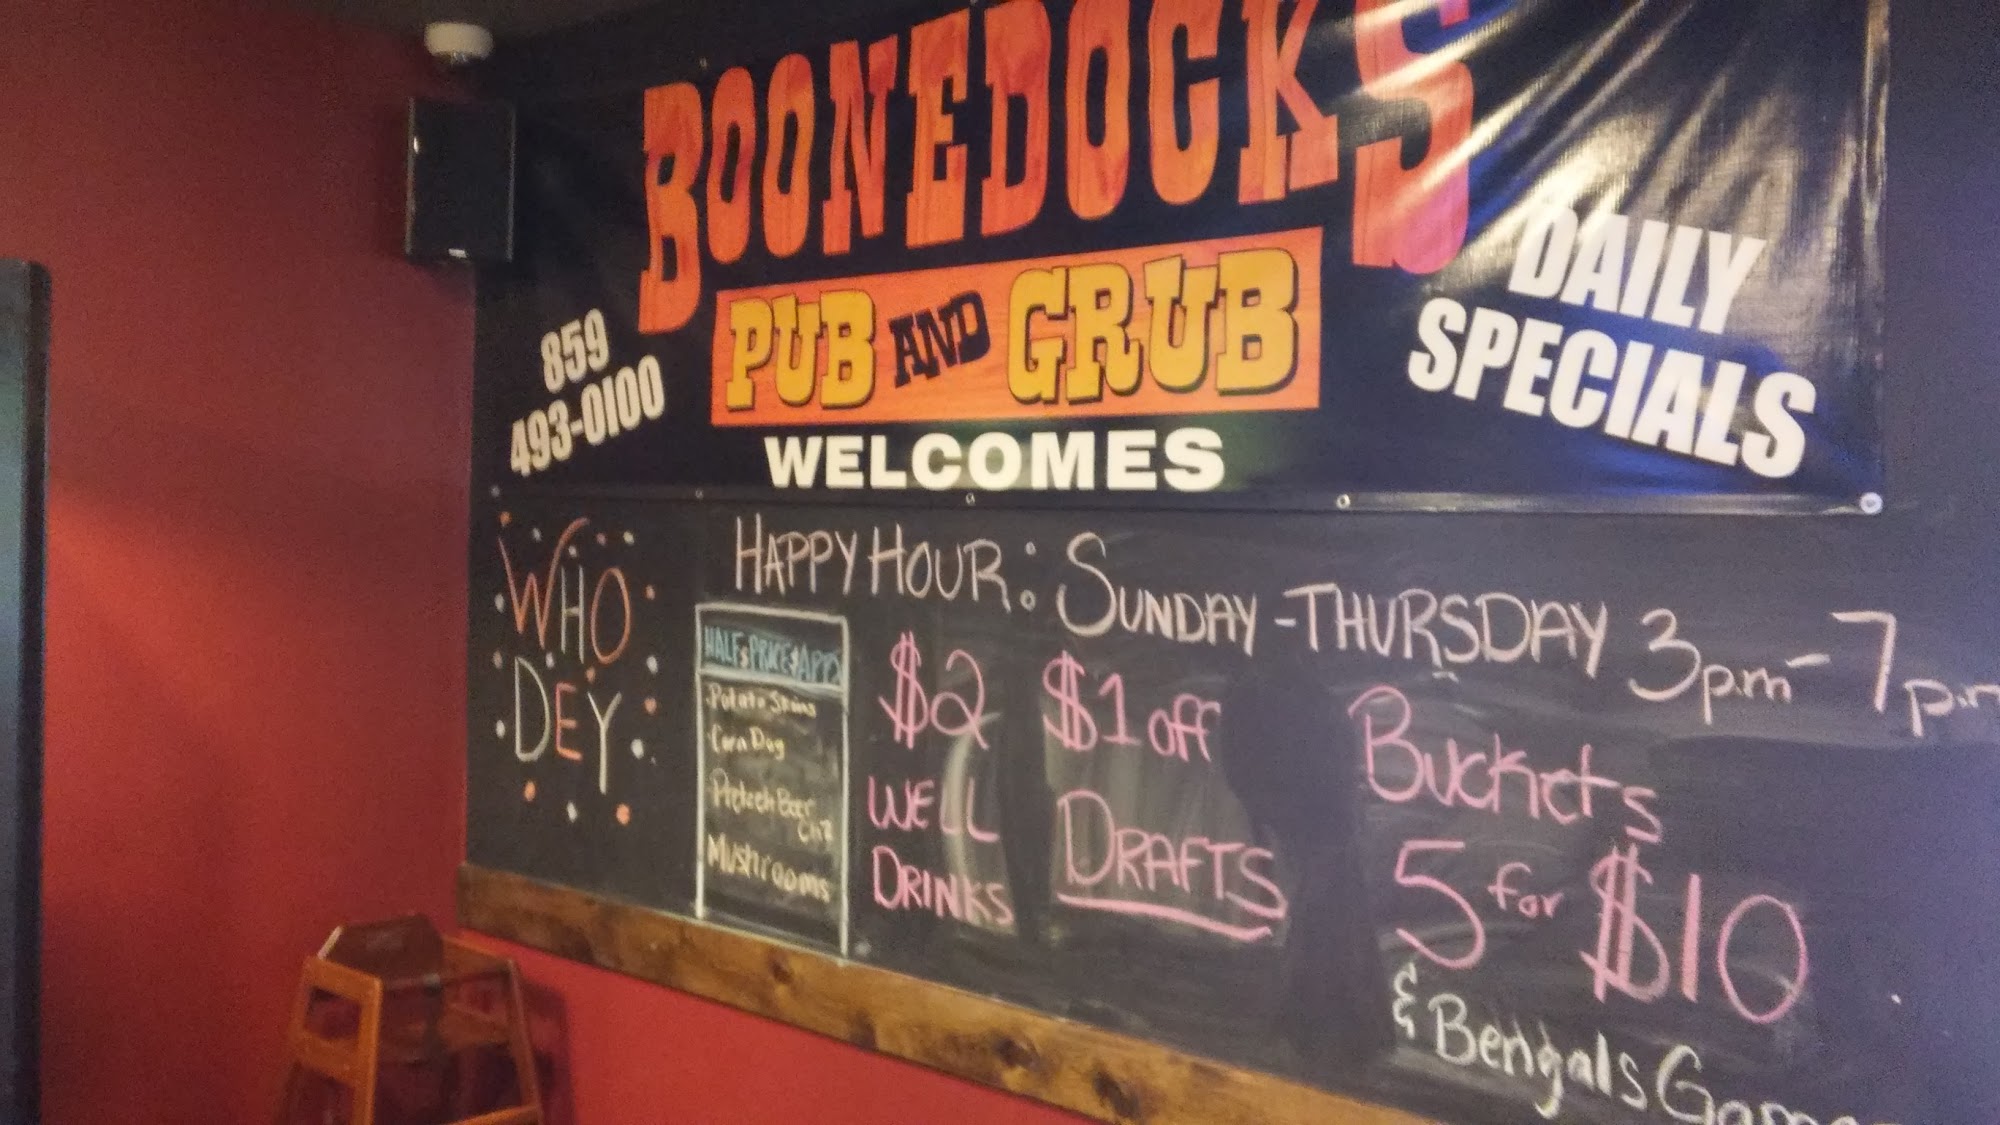 BOONEDOCKS
PUB AND GRUB
WELCOMES
859
493-0100
DAILY
SPECIALS
WHO
DEY
HAPPY HOUR: SUNDAY-THURSDAY 3pm-7pm
HALF PRICE APPS
Potato Skins
Corn Dog
Beer
Mushrooms
$2
WELL
DRINKS
$1 off
DRAFTS
Buckets
5 for $10
& Bengals Game